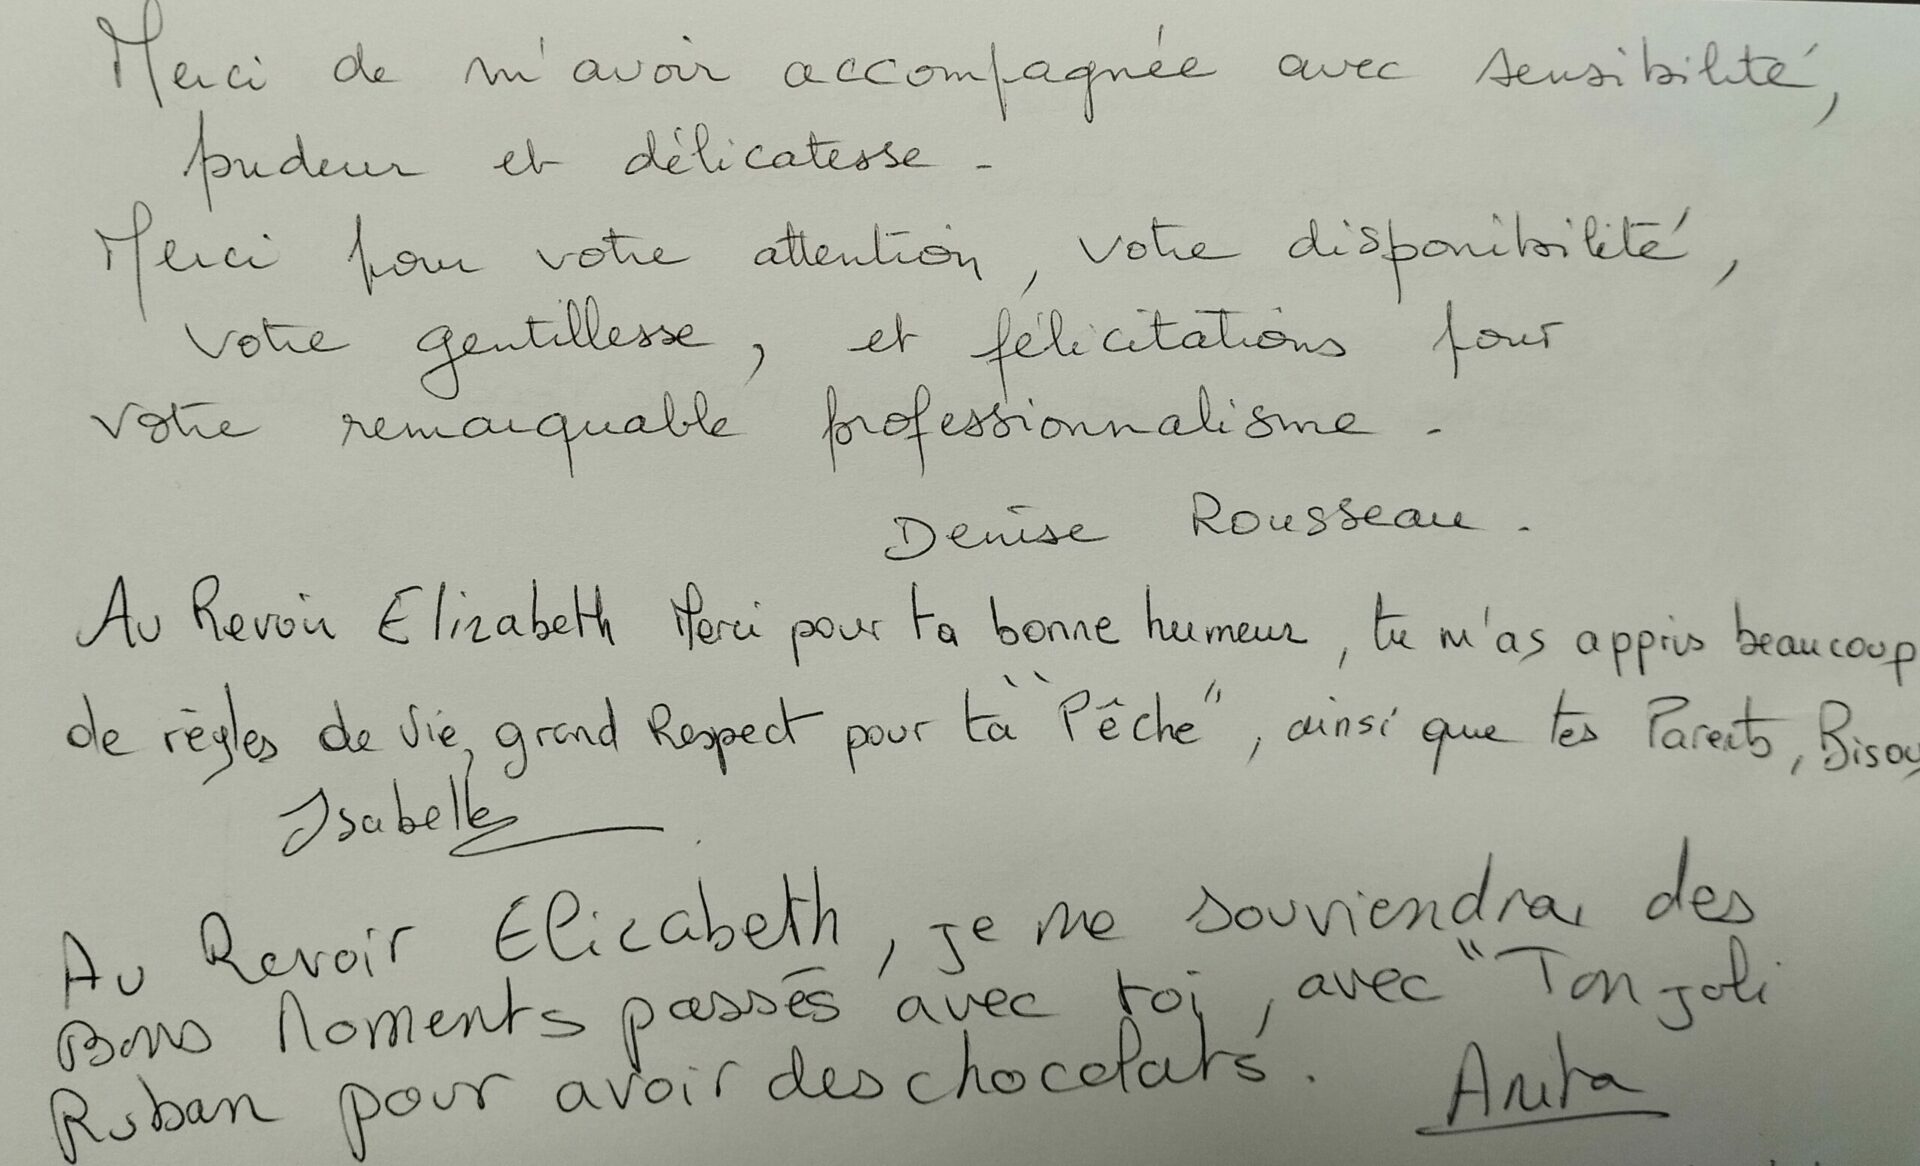 Merci de m'avoir accompagnée avec sensibilité,
pudeur et délicatesse -
Merci pour votre attention, votre disponibilité,
votre gentillesse, et félicitations pour
votre remarquable professionnalisme.
Denise Rousseau.
Au Revoir Elizabeth Merci pour ta bonne humeur, tu m'as appris beaucoup
de règles de vie, grand Respect pour ta "Pêche", ainsi que tes Parents, Bisou
Isabelle
Au Revoir Elizabeth, je me souviendrai des
Bons Moments passés avec toi, avec "Ton joli
Ruban pour avoir des chocolats. Anita